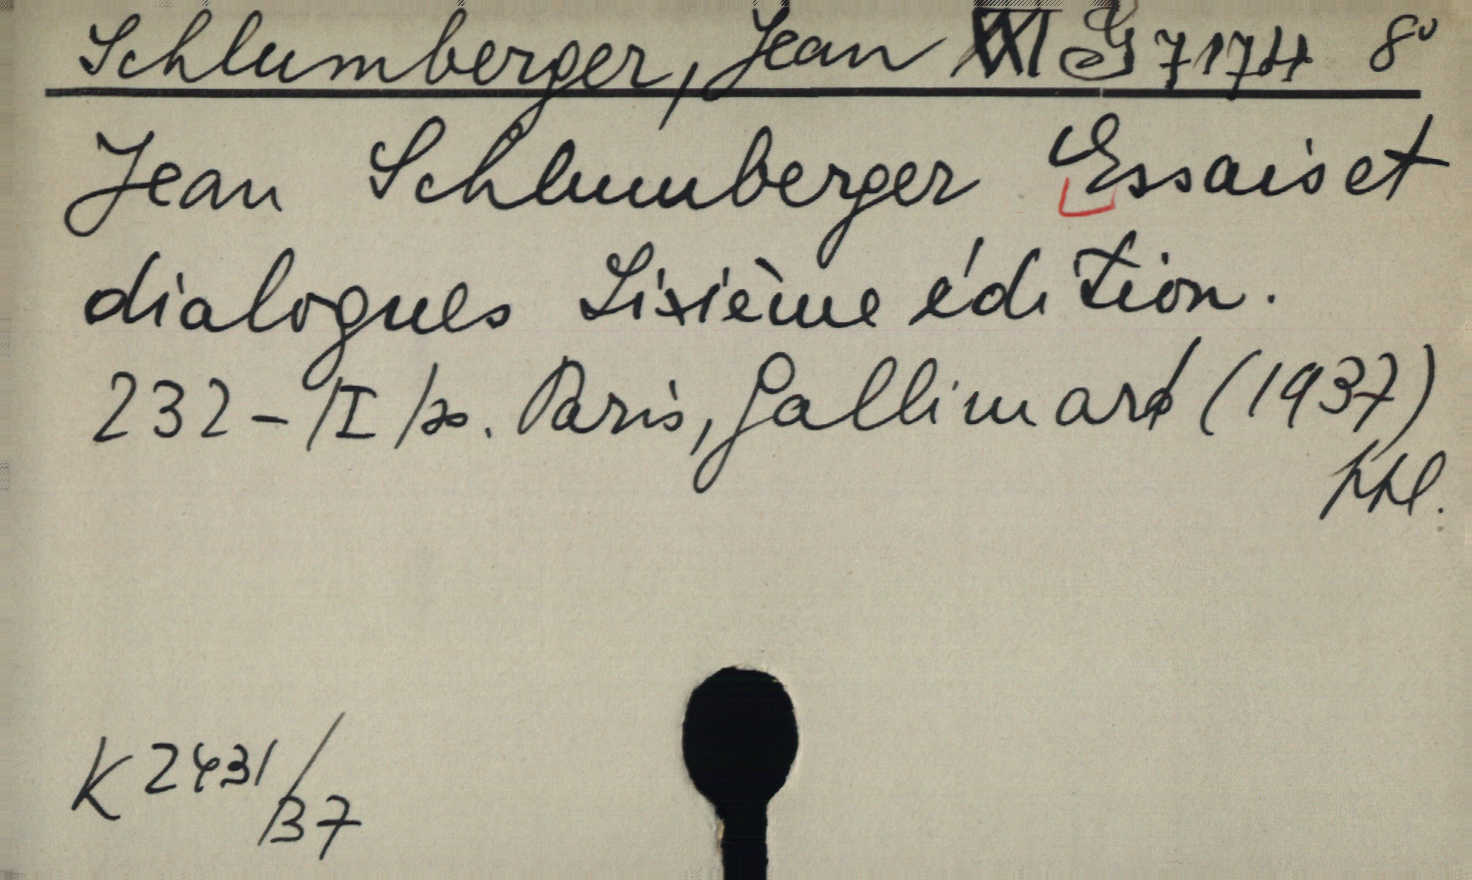 Schlumberger, Jean XXI G 7174 8°
Jean Schlumberger Essais et
dialogues Sixième édition.
232 - /I/ s. Paris, Gallimard (1937)
K 2431/37